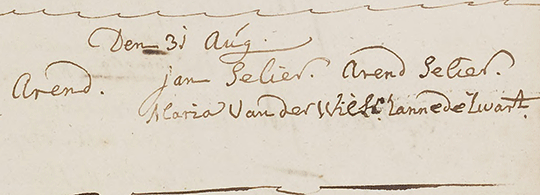 Den 31 Aug.
Arend. Jan Selier. Arend Selier.
Maria Van der Wielk. Jannede Zwart.